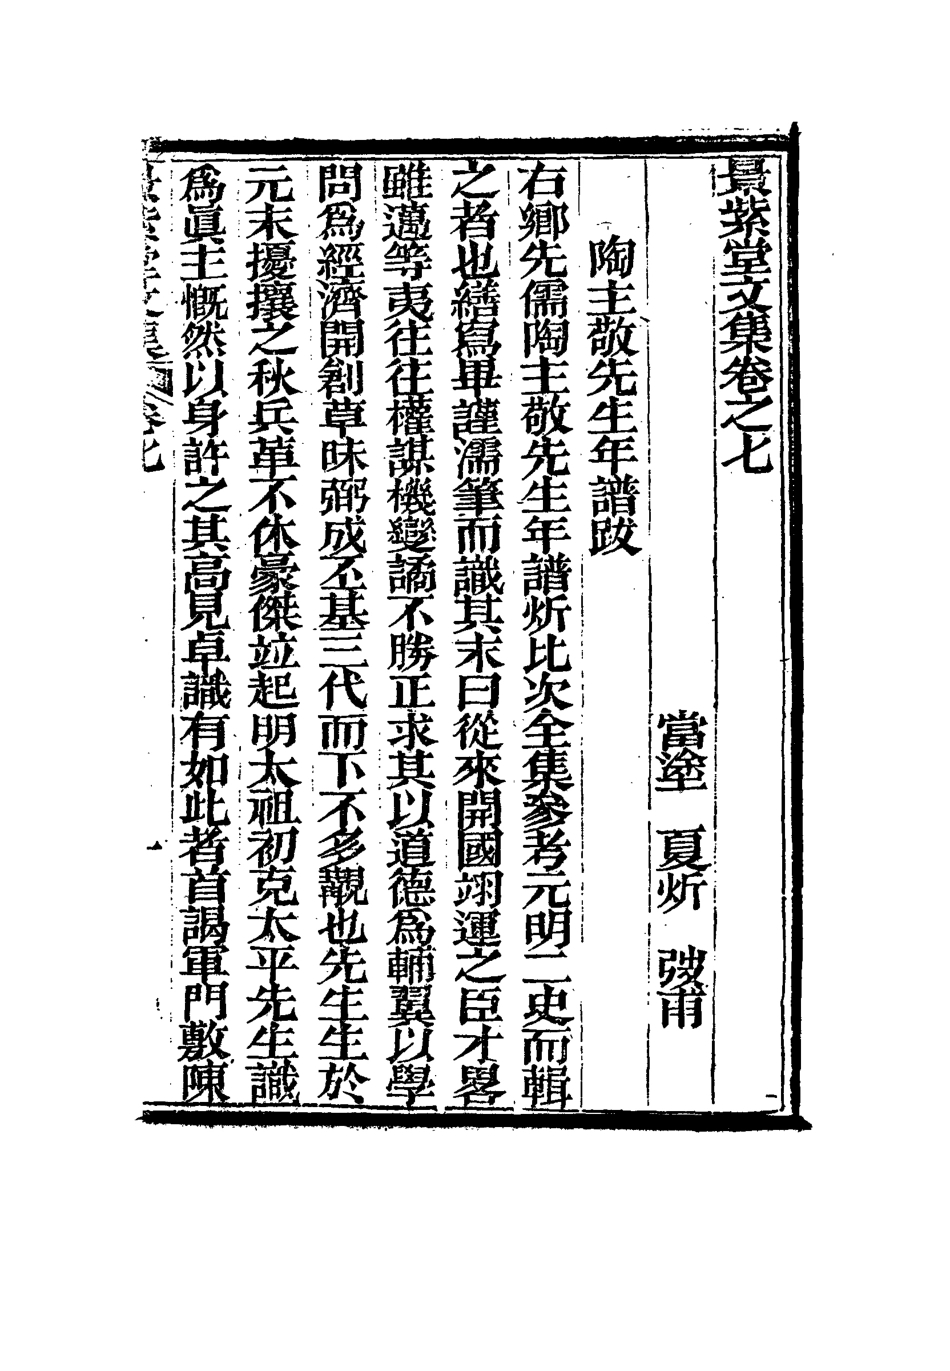 景紫堂文集卷之七
當塗 夏炘 弢甫
陶主敬先生年譜跋
右鄉先儒陶主敬先生年譜炘比次全集參考元明二史而輯
之者也繕寫畢謹濡筆而識其末曰從來開國翊運之臣才畧
雖邁等夷往往權謀機變譎不勝正求其以道德爲輔翼以學
問爲經濟開創草昧弼成丕基三代而下不多覯也先生生於
元末擾攘之秋兵革不休豪傑竝起明太祖初克太平先生識
爲眞主慨然以身許之其高見卓識有如此者首謁軍門敷陳
景紫堂文集 卷七 一